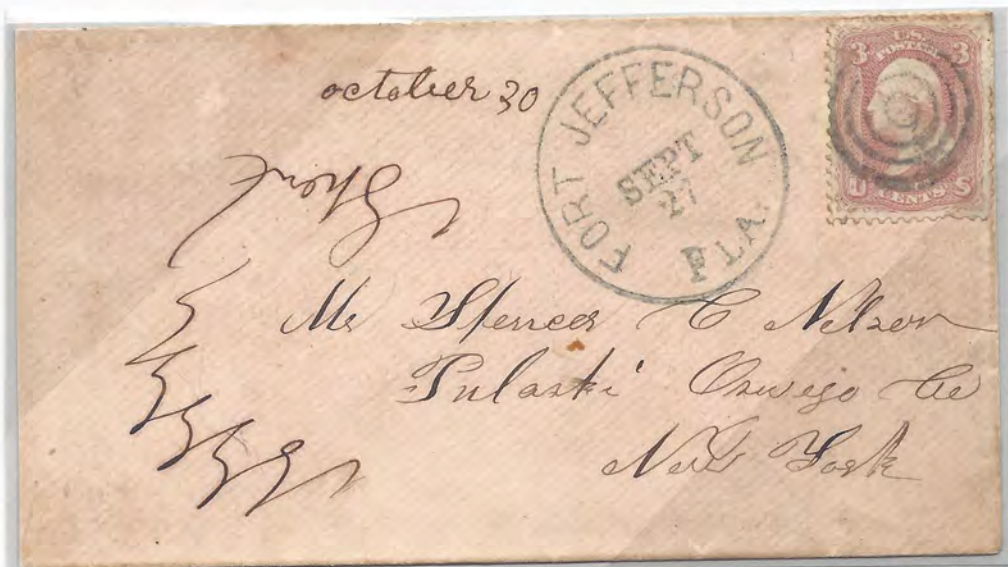 october 30
FORT JEFFERSON FLA.
SEPT
27
3 U.S. 3
POSTAGE
U CENTS S
Mr Spencer C Nelson
Pulaski Oswego Co
New York